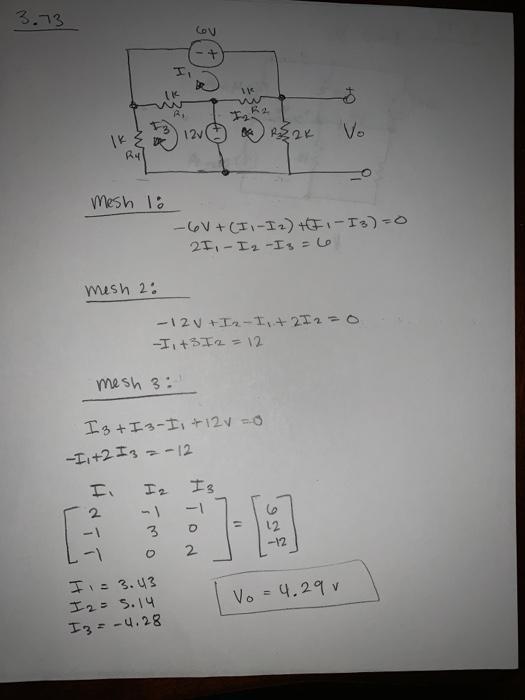 3.73
6V
- +
I1
1K 1K
R1 R2
I3 12V + - I2 R3 2K
1K
R4
+
Vo
-
mesh 1:
-6V + (I1-I2) + (I1-I3) = 0
2I1 - I2 - I3 = 6
mesh 2:
-12V + I2 - I1 + 2I2 = 0
-I1 + 3I2 = 12
mesh 3:
I3 + I3 - I1 + 12V = 0
-I1 + 2I3 = -12
I1 I2 I3
2 -1 -1 6
-1 3 0 = 12
-1 0 2 -12
I1 = 3.43
I2 = 5.14
I3 = -4.28
Vo = 4.29 v